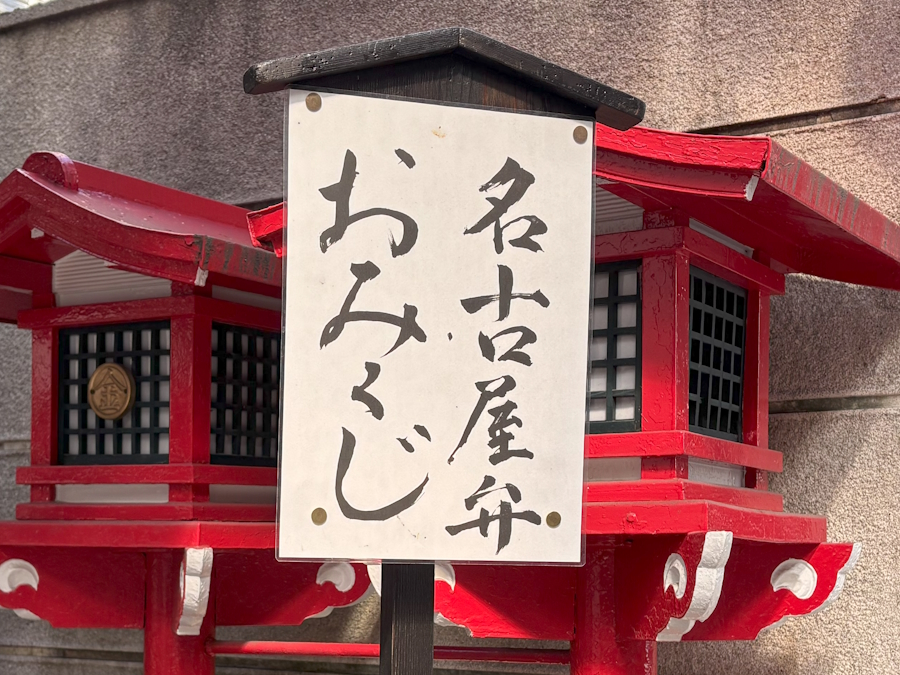 名古屋弁
おみくじ
金